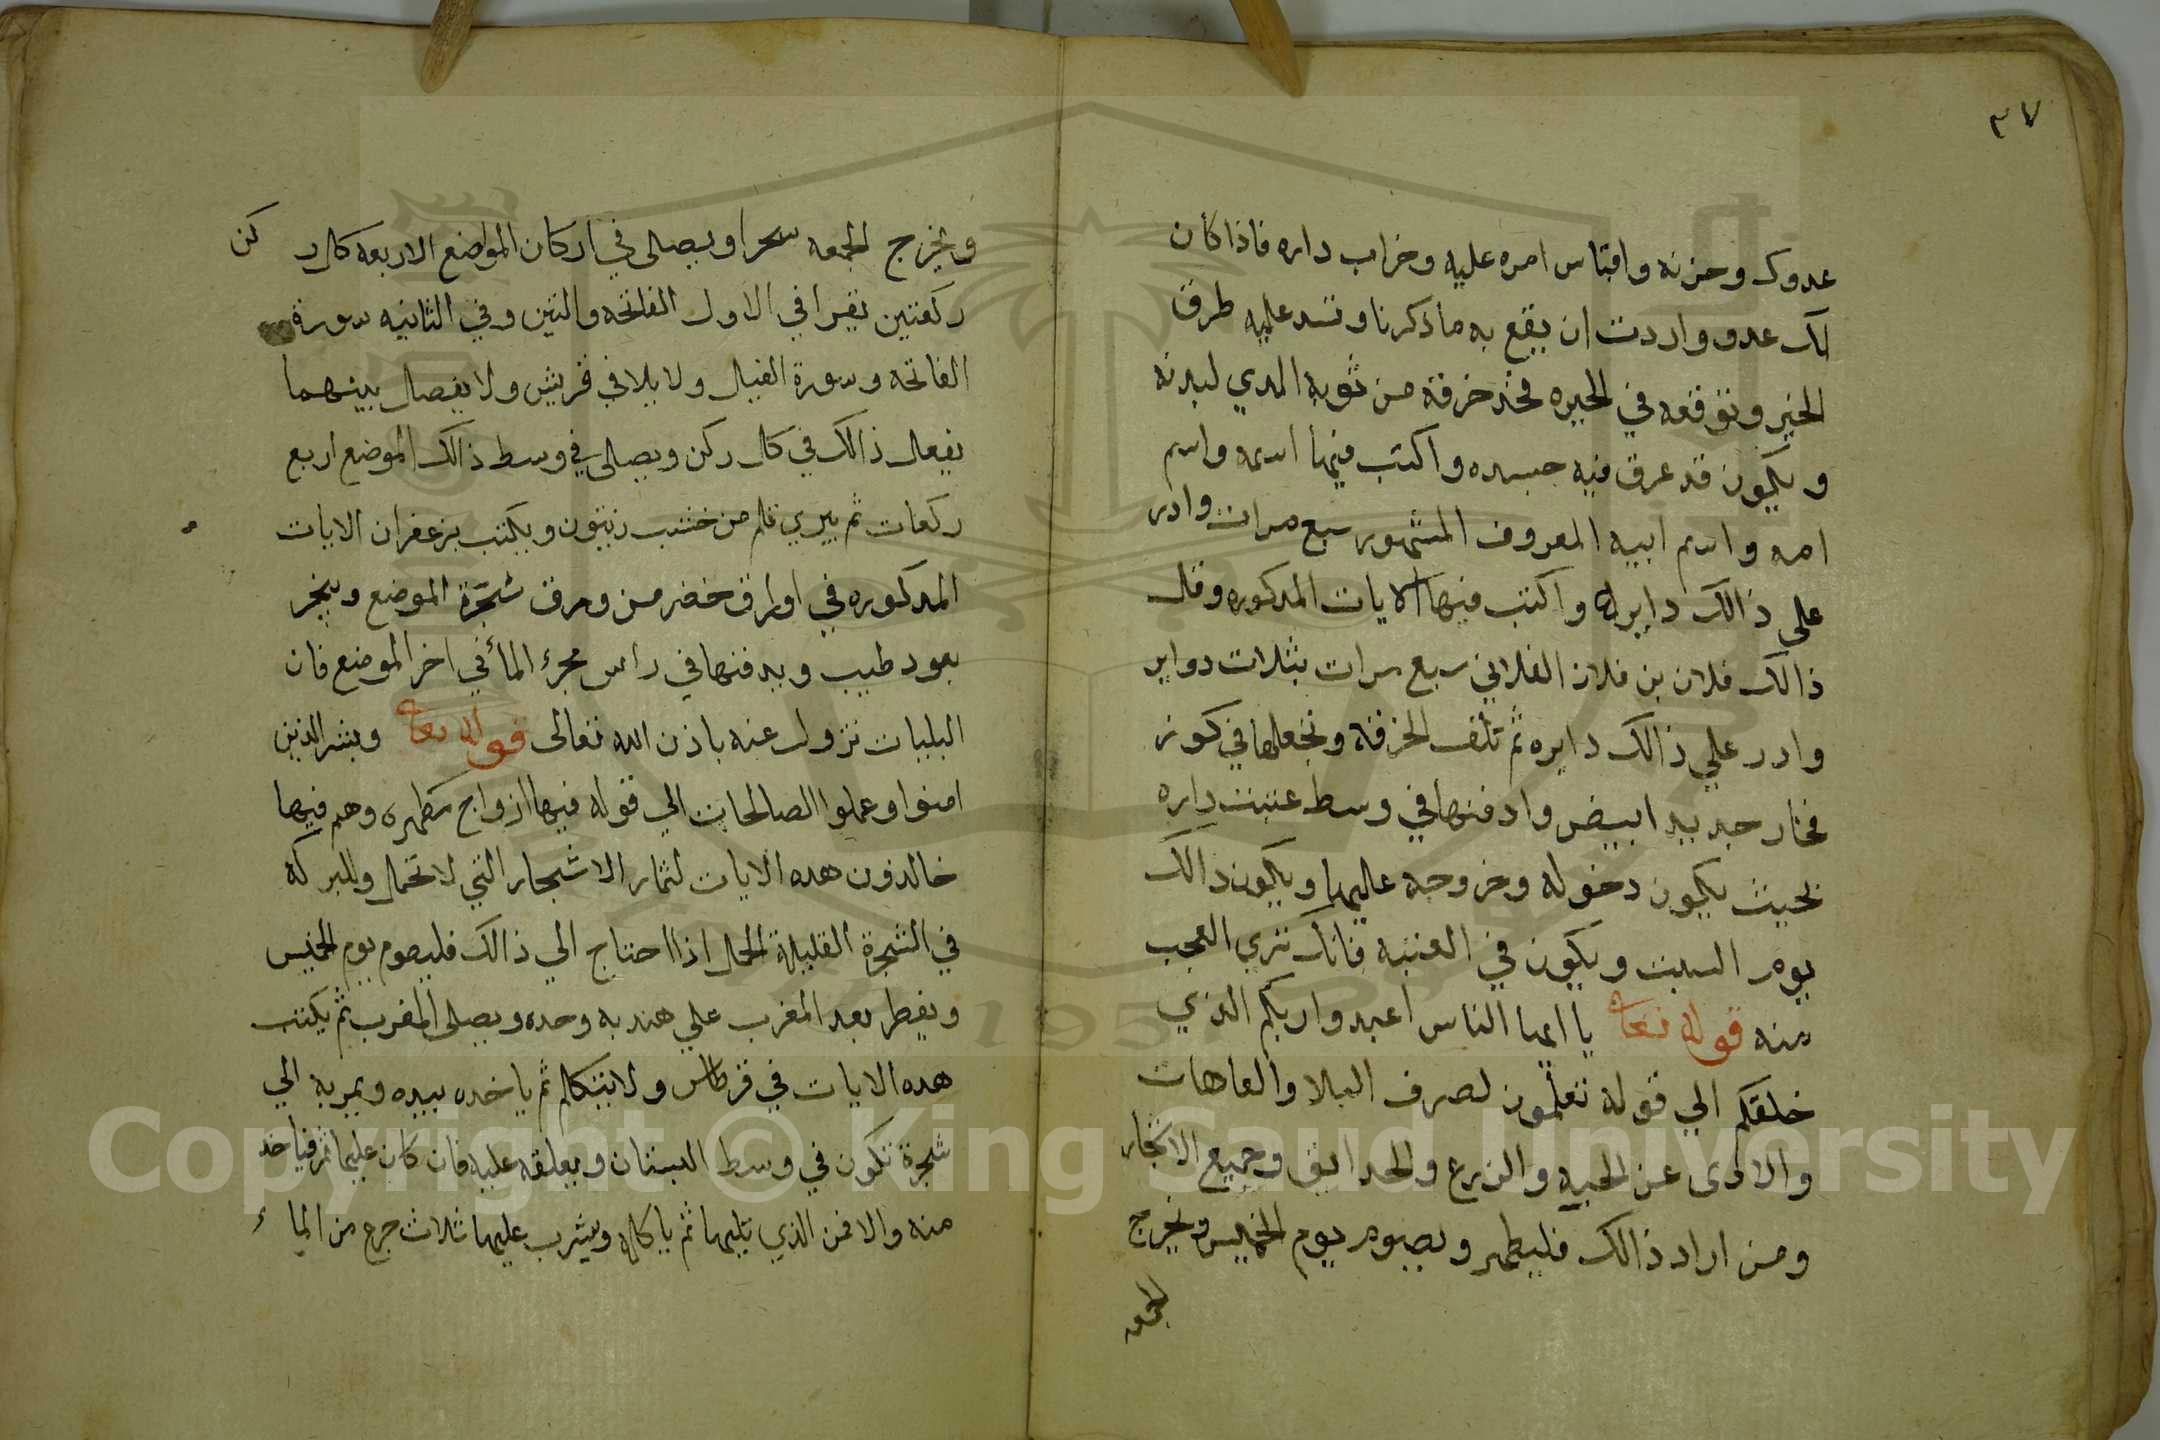 ٣٧
عدوك وحزنه واقباس امره عليه وخراب داره فاذا كان
لك عدو واردت ان يقع به ما ذكرنا وتسد عليه طرق
الخير وتوقعه في الحيره فخذ خرقة من ثوبه الدي لبدنه
ويكون قد عرق فيه جسده واكتب فيها اسمه واسم
امه واسم ابيه المعروف المشهور سبع مرات وادر
على ذالك دايره واكتب فيها الايات المدكوره وقل
ذالك فلان بن فلان الفلاني سبع مرات بثلاث دواير
وادر علي ذالك دايره ثم تلف الخرقة وتجعلها في كوز
فخار جديد ابيض وادفنها في وسط عتبت داره
بحيث يكون دخوله وخروجه عليها ويكون دالك
يوم السبت ويكون في العتبه فانك تري العجب
منه قوله تعا يا ايها الناس اعبدوا ربكم الذي
خلقكم الي قوله تعلمون لصرف البلا والعاهات
والادى عن الحبه والزرع والحدايق وجميع الاشجار
ومن اراد ذالك فليطهر ويصوم يوم الخميس ويخرج
الجمعه
ويخرج الجمعه سحرا ويصلى في اركان المواضع الاربعه كل ركن
ركعتين يقرا في الاول الفاتحه والتين وفي الثانيه سورة
الفاتحه وسورة الفيل ولايلافي قريش ولا يفصل بينهما
يفعل ذالك في كل ركن ويصلى في وسط ذالك الموضع اربع
ركعات ثم يبري قلم من خشب زيتون ويكتب بزعفران الايات
المدكوره في اوراق خضر من ورق شجرة الموضع ويبخر
بعود طيب ويدفنها في راس مجرء المأ في اخر الموضع فان
البليات تزول عنه باذن الله تعالى قوله تعا وبشر الذين
امنوا وعملوا الصالحات الي قوله فيها ازواج مطهره وهم فيها
خالدون هده الايات لثمار الاشجار التي لا تحمل وللبركه
في الشجرة القليلة الحمل اذا احتاج الي ذالك فليصوم يوم الخميس
ويفطر بعد المغرب علي هندبه وحده ويصلى المغرب ثم يكتب
هده الايات في قرطاس ولا يتكلم ثم ياخده بيده ويمر به الي
شجرة تكون في وسط البستان ويعلقه عليه فان كان عليها ثمر فياخد
منه والا فمن الذي يليها ثم ياكله ويشرب عليها ثلاث جرع من الماء
Copyright © King Saud University